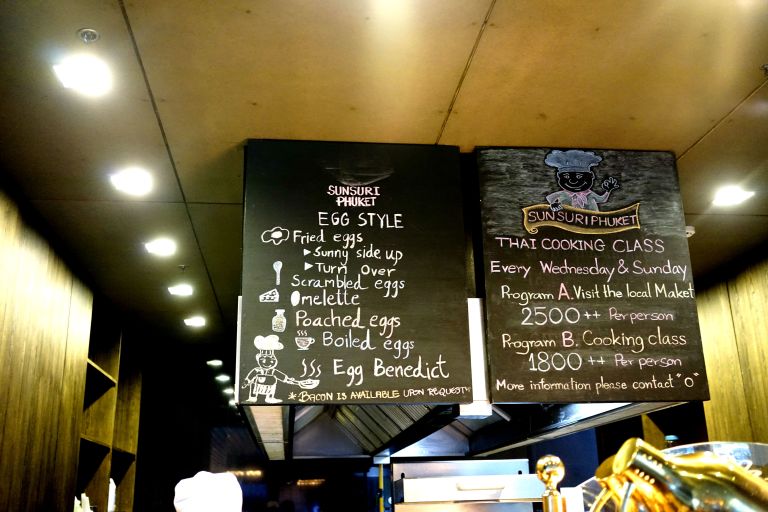 SUNSURI
PHUKET
EGG STYLE
Fried eggs
▶ Sunny side up
▶ Turn Over
Scrambled eggs
Omelette
Poached eggs
Boiled eggs
Egg Benedict
*BACON IS AVAILABLE UPON REQUEST*
SUNSURI PHUKET
THAI COOKING CLASS
Every Wednesday & Sunday
Program A. Visit the local Maket
2500++ Per person
Program B. Cooking class
1800++ Per person
More information please contact "0"